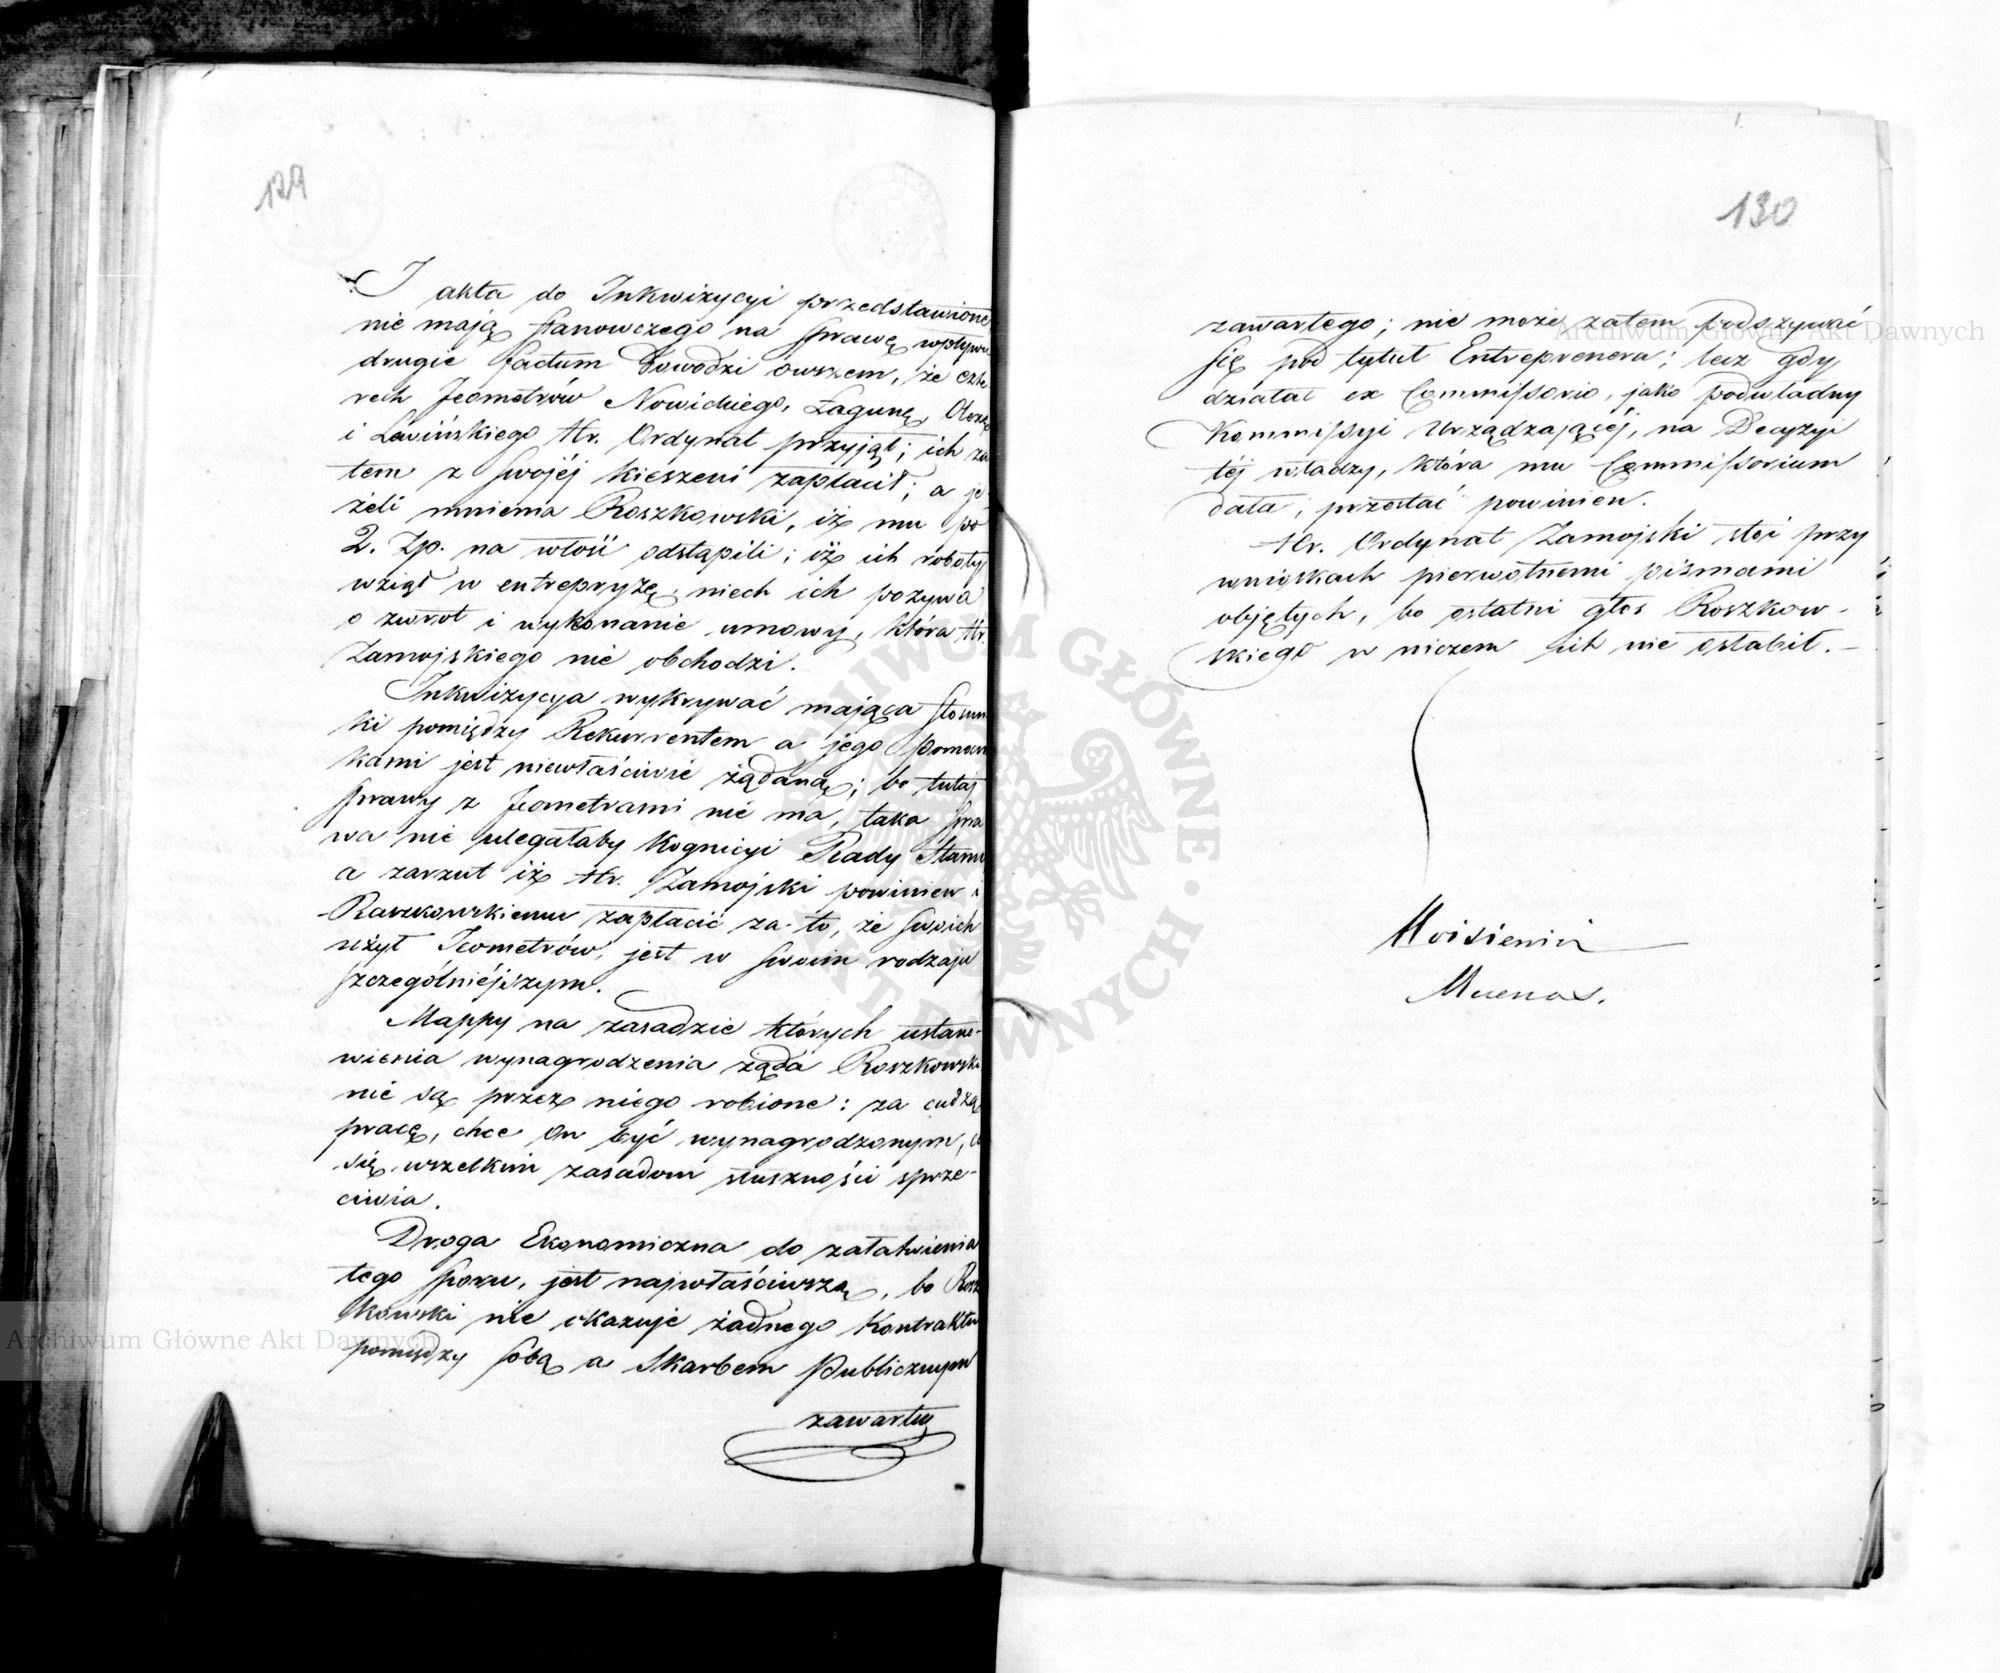 129
I akta do Inkwizycyi przedstawione
nie mają stanowczego na sprawę wpływu
drugie factum dowodzi owszem, że czte
rech Jeometrów Nowickiego, Łagunę,
i Lewińskiego Hr. Ordynat przyjął; ich za
tem z swojéj kieszeni zapłacił; a je
żeli mniema Roszkowski, iż mu po
2. Zp. na włóś odstąpili; iż ich roboty
wziął w entrepryżę, niech ich pozywa
o zwrot i wykonanie umowy, która Hr.
Zamojskiego nie obchodzi.
Inkwizycya wykrywać mająca stosun
ki pomiędzy Rekurrentem a jego pomocni
kami jest niewłaściwie żądaną; bo tutaj
sprawy z Jeometrami nié ma, taka spra
wa nie ulegałaby Kognicyi Rady Stanu
a zarzut iż Hr. Zamojski powinien i
Raszkowskiemu zapłacić za to, że swoich
użył Jeometrów, jest w swoim rodzaju
szczególniéjszym.
Mappy na zasadzie których ustano-
wienia wynagrodzenia żąda Roszkowski
nie są przez niego robione: za cudzą
pracę, chce on być wynagrodzonym, co
się wszelkim zasadom słuszności sprze-
ciwia.
Droga Ekonomiczna do załatwienia
tego sporu, jest najwłaściwszą, bo Rosz
kowski nie okazuje żadnego Kontraktu
pomiędzy sobą a Skarbem Publicznym
zawartego
130
zawartego; nie może zatem podszywać
się pod tytuł Entreprenera; lecz gdy
działał ex Commissorio, jako podwładny
Kommissyi Urządzającéj, na Decyzyi
téj władzy, która mu Commissorium
dała, przestać powinien.
Hr. Ordynat Zamojski stoi przy
wnioskach pierwotnemi pismami
objętych, bo ostatni głos Roszkow-
skiego w niczem ich nie osłabił.
Archiwum Główne Akt Dawnych
Archiwum Główne Akt Dawnych
ARCHIWUM GŁÓWNE · AKT DAWNYCH ·